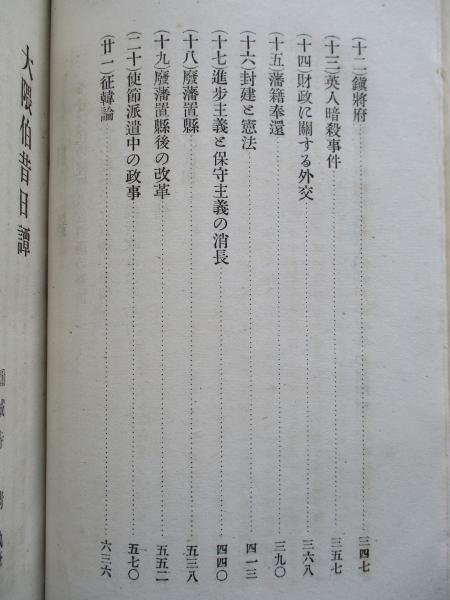 (十二)鎭將府……三四七
(十三)英人暗殺事件……三五七
(十四)財政に關する外交……三六八
(十五)藩籍奉還……三九〇
(十六)封建と憲法……四一三
(十七)進步主義と保守主義の消長……四四〇
(十八)廢藩置縣……五三八
(十九)廢藩置縣後の改革……五五二
(二十)使節派遣中の政事……五七〇
(廿一)征韓論……六三六
大隈伯昔日譚